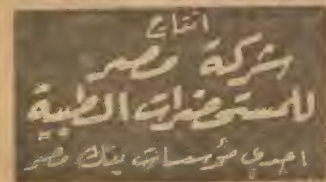 انتاج
شركة مصر
للمستحضرات الطبية
احدى مؤسسات بنك مصر